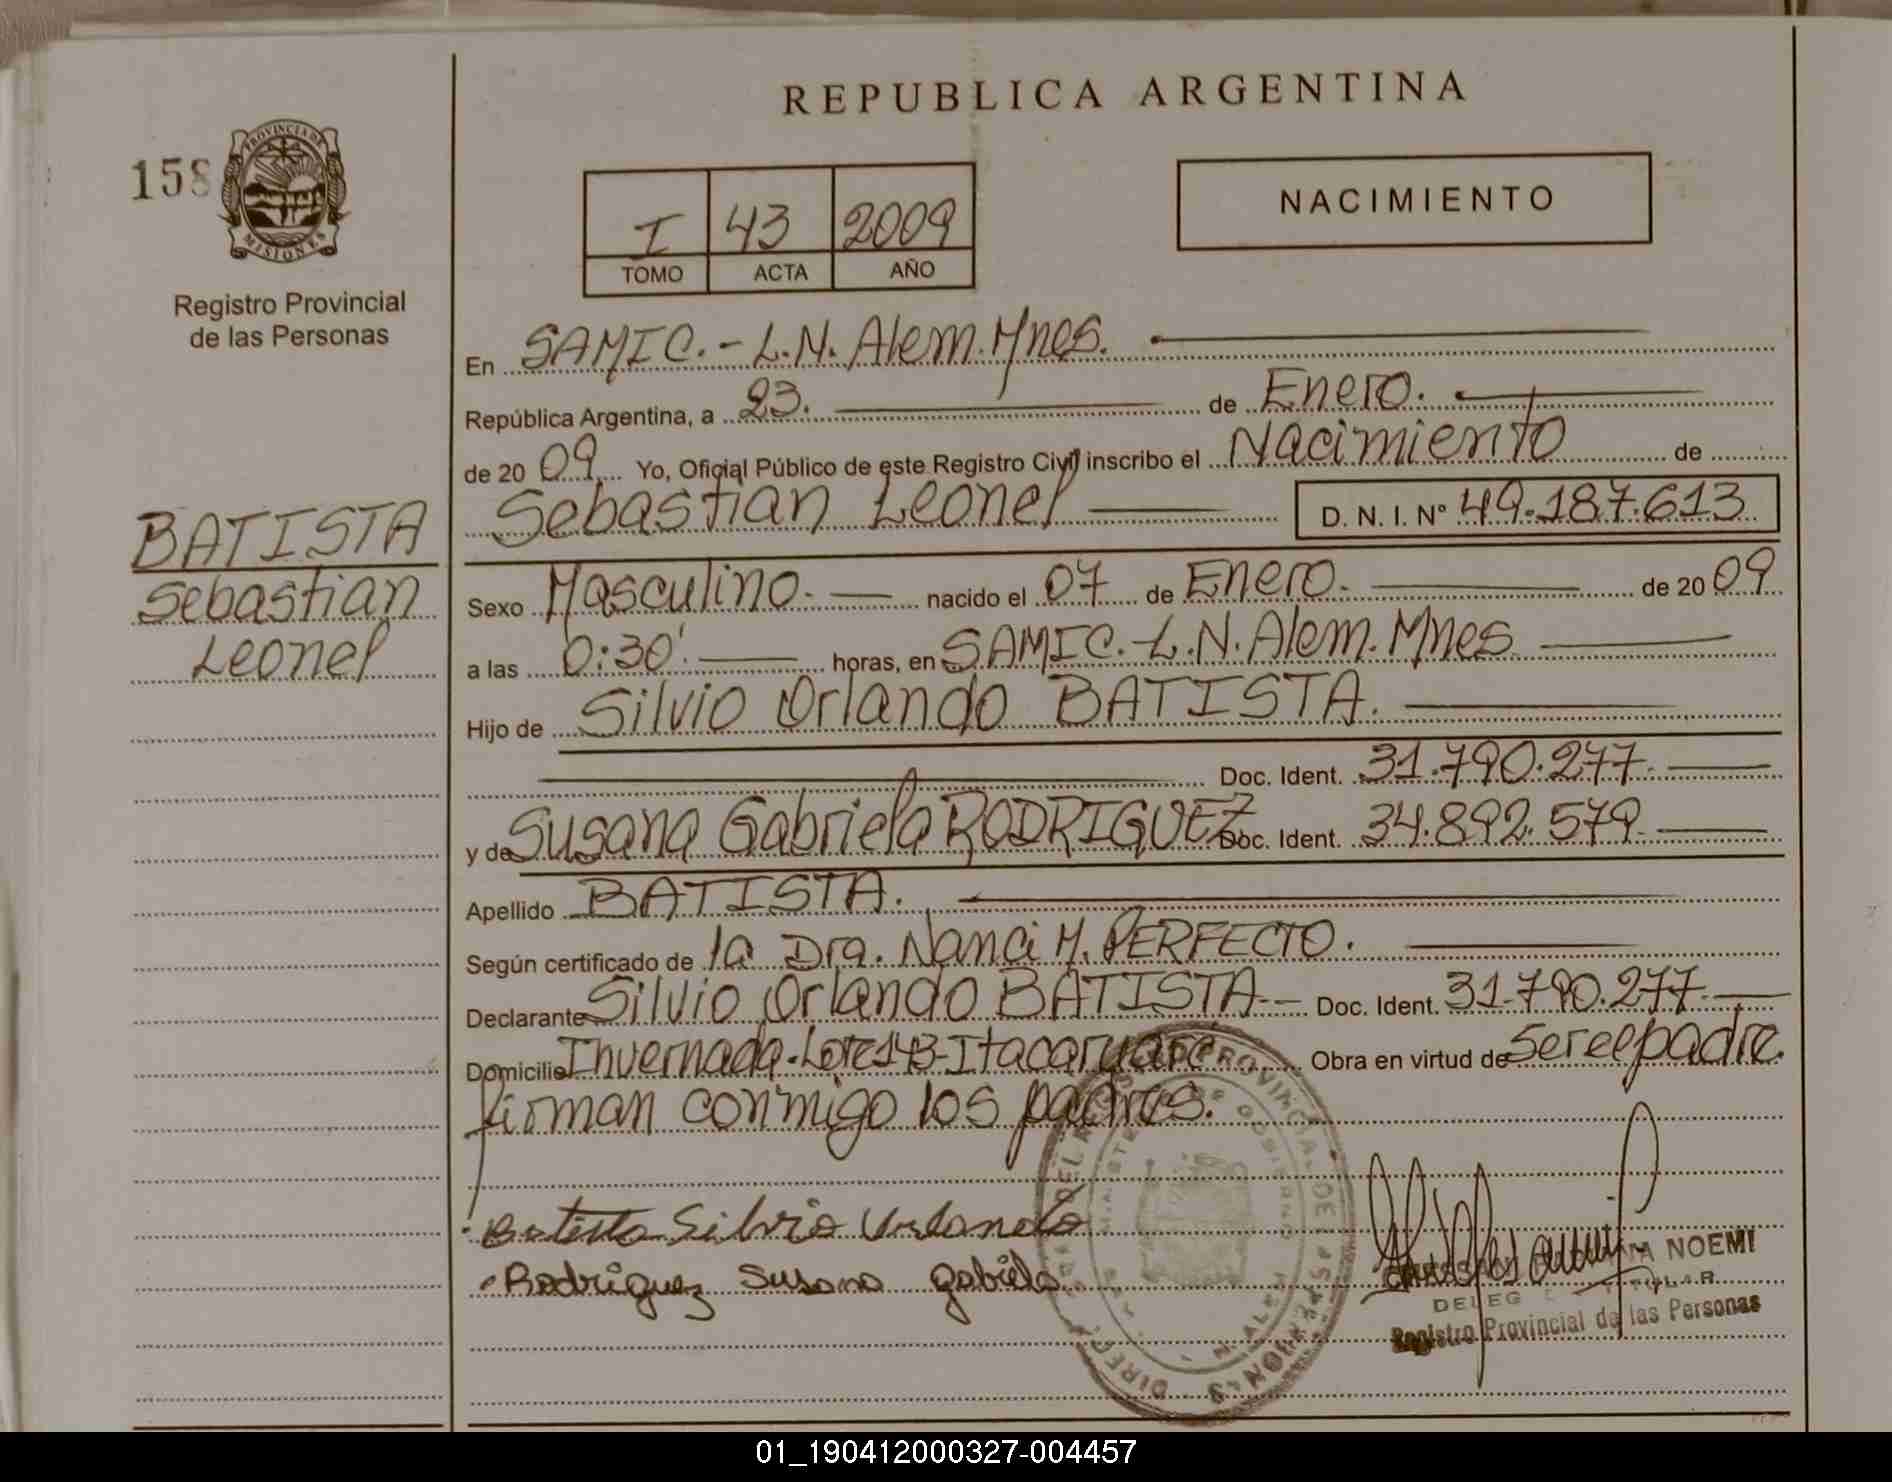 REPUBLICA ARGENTINA
158
PROVINCIA DE
MISIONES
Registro Provincial
de las Personas
I 43 2009
TOMO ACTA AÑO
NACIMIENTO
En SAMIC.- L.N. Alem. Mnes.
República Argentina, a 23. de Enero.
de 2009. Yo, Oficial Público de este Registro Civil inscribo el Nacimiento de
Sebastian Leonel D. N. I. Nº 49.187.613
BATISTA
Sebastian
Leonel
Sexo Masculino. nacido el 07 de Enero. de 2009
a las 0:30'. horas, en SAMIC.-L.N. Alem. Mnes
Hijo de Silvio Orlando BATISTA.
Doc. Ident. 31.790.277.
y de Susana Gabriela RODRIGUEZ Doc. Ident. 34.892.579.
Apellido BATISTA.
Según certificado de la Dra. Nanci M. PERFECTO.
Declarante Silvio Orlando BATISTA Doc. Ident. 31.790.277.
Domicilio Invernada-Lote 143-Itacaruaré Obra en virtud de Ser el padre.
firman conmigo los padres.
Batista Silvio Orlando
Rodriguez Susana Gabriela
NOEMI
Registro Provincial de las Personas
01_190412000327-004457